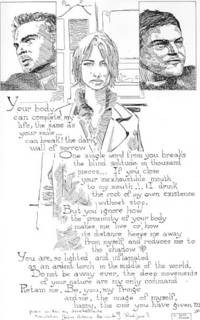 Your body
can complete my
life, the same as
your smile...
can break the dark
wall of sorrow
One single word from you breaks
the blind solitude in thousand
pieces... If you close
your inexhaustible mouth
to my mouth... I drink
the root of my own existence
without stop.
But you ignore how
the proximity of your body
makes me live or, how
its distance keeps me away
from myself and reduces me to
the shadow
You are, so lighted and inflamated
as an ardent torch in the middle of the world.
Don't be away ever, the deep movements
of your nature are my only command
Retain me. Be, you, my frost
and me, the image of myself,
happy, the one you have given m